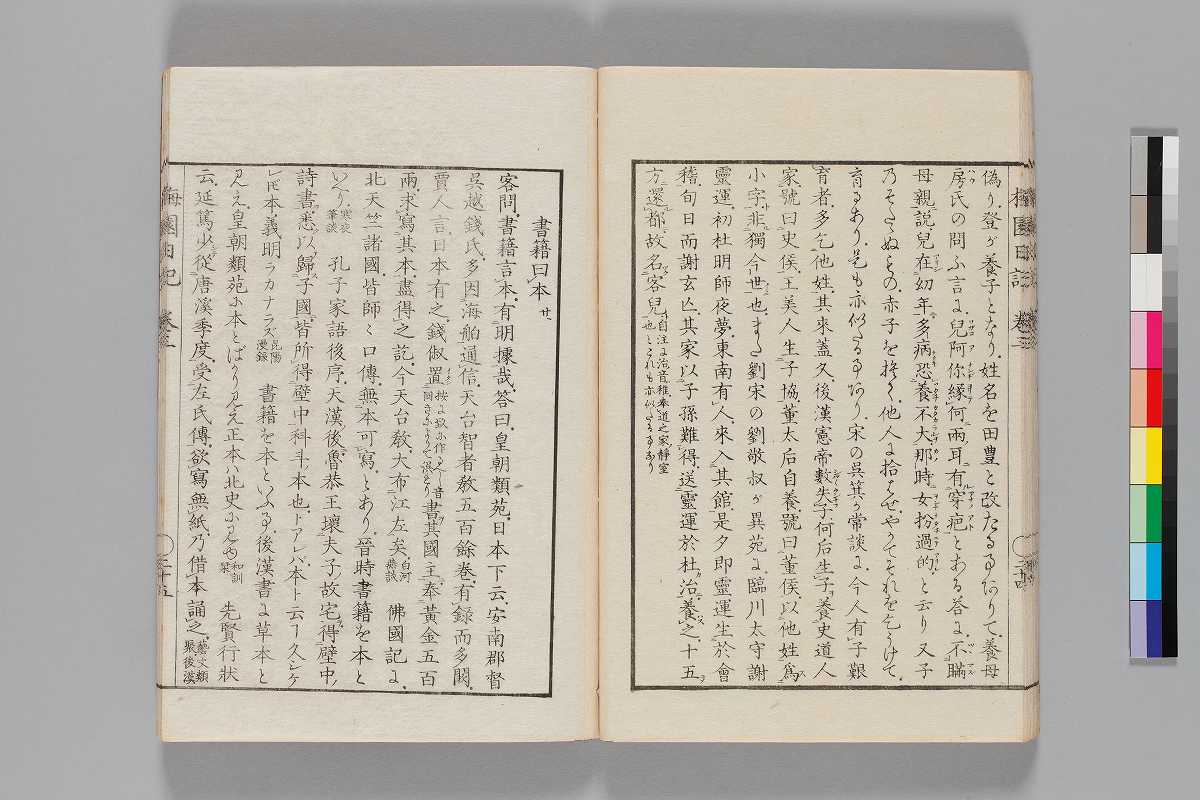 偽り登が養子となり姓名を田豊と改たる事ありて養母
房氏の問ふ言に兒阿你緣何兩耳有穿疤とある答に不瞞
母親説兒在幼年多病恐養不大那時女扮過的と云り又子
乃そだたぬものゝ赤子を捨て他人に拾はせやがてそれを乞うけて
育る事あり是も亦似たる事なり宋の吳箕が常談に今人有子艱
育者多乞他姓其來蓋久後漢憲帝數失子何后生子養史道人
家號曰史侯王美人生子協董太后自養號曰董侯以他姓爲
小字非獨今世也また劉宋の劉敬叔が異苑に臨川太守謝
靈運初杜明師夜夢東南有人來入其館是夕即靈運生於會
稽旬日而謝玄亡其家以子孫難得送靈運於杜治養之十五
方還都故名客兒自注に治音稚奉道之家靜室也とこれも亦似たる事なり
梅園日記 卷三 三十四
書籍曰本 廿
客問書籍言本有明據哉答曰皇朝類苑日本下云安南郡督
吳越錢氏多因海舶通信天台智者教五百餘卷有録而多闕
賈人言日本有之錢俶置書其國主奉黃金五百
兩求寫其本盡得之訖今天台教大布江左矣 佛國記に
北天竺諸國皆師々口傳無本可寫とあり晉時書籍を本と
いへり寒夜筆談 孔子家語後序天漢後魯恭王壞夫子故宅得壁中
詩書悉以歸子國皆所得壁中科斗本也トアレバ本ト云フ久シケ
レド本義明ラカナラズ昆陽漫録 書籍を本といふ事後漢書に草本と
見え皇朝類苑に本とばかり見え正本ハ北史に見ゆ和訓栞 先賢行狀
云延篤少從唐溪季度受左氏傳欲寫無紙乃借本誦之藝文類聚後漢
梅園日記 卷三 三十五